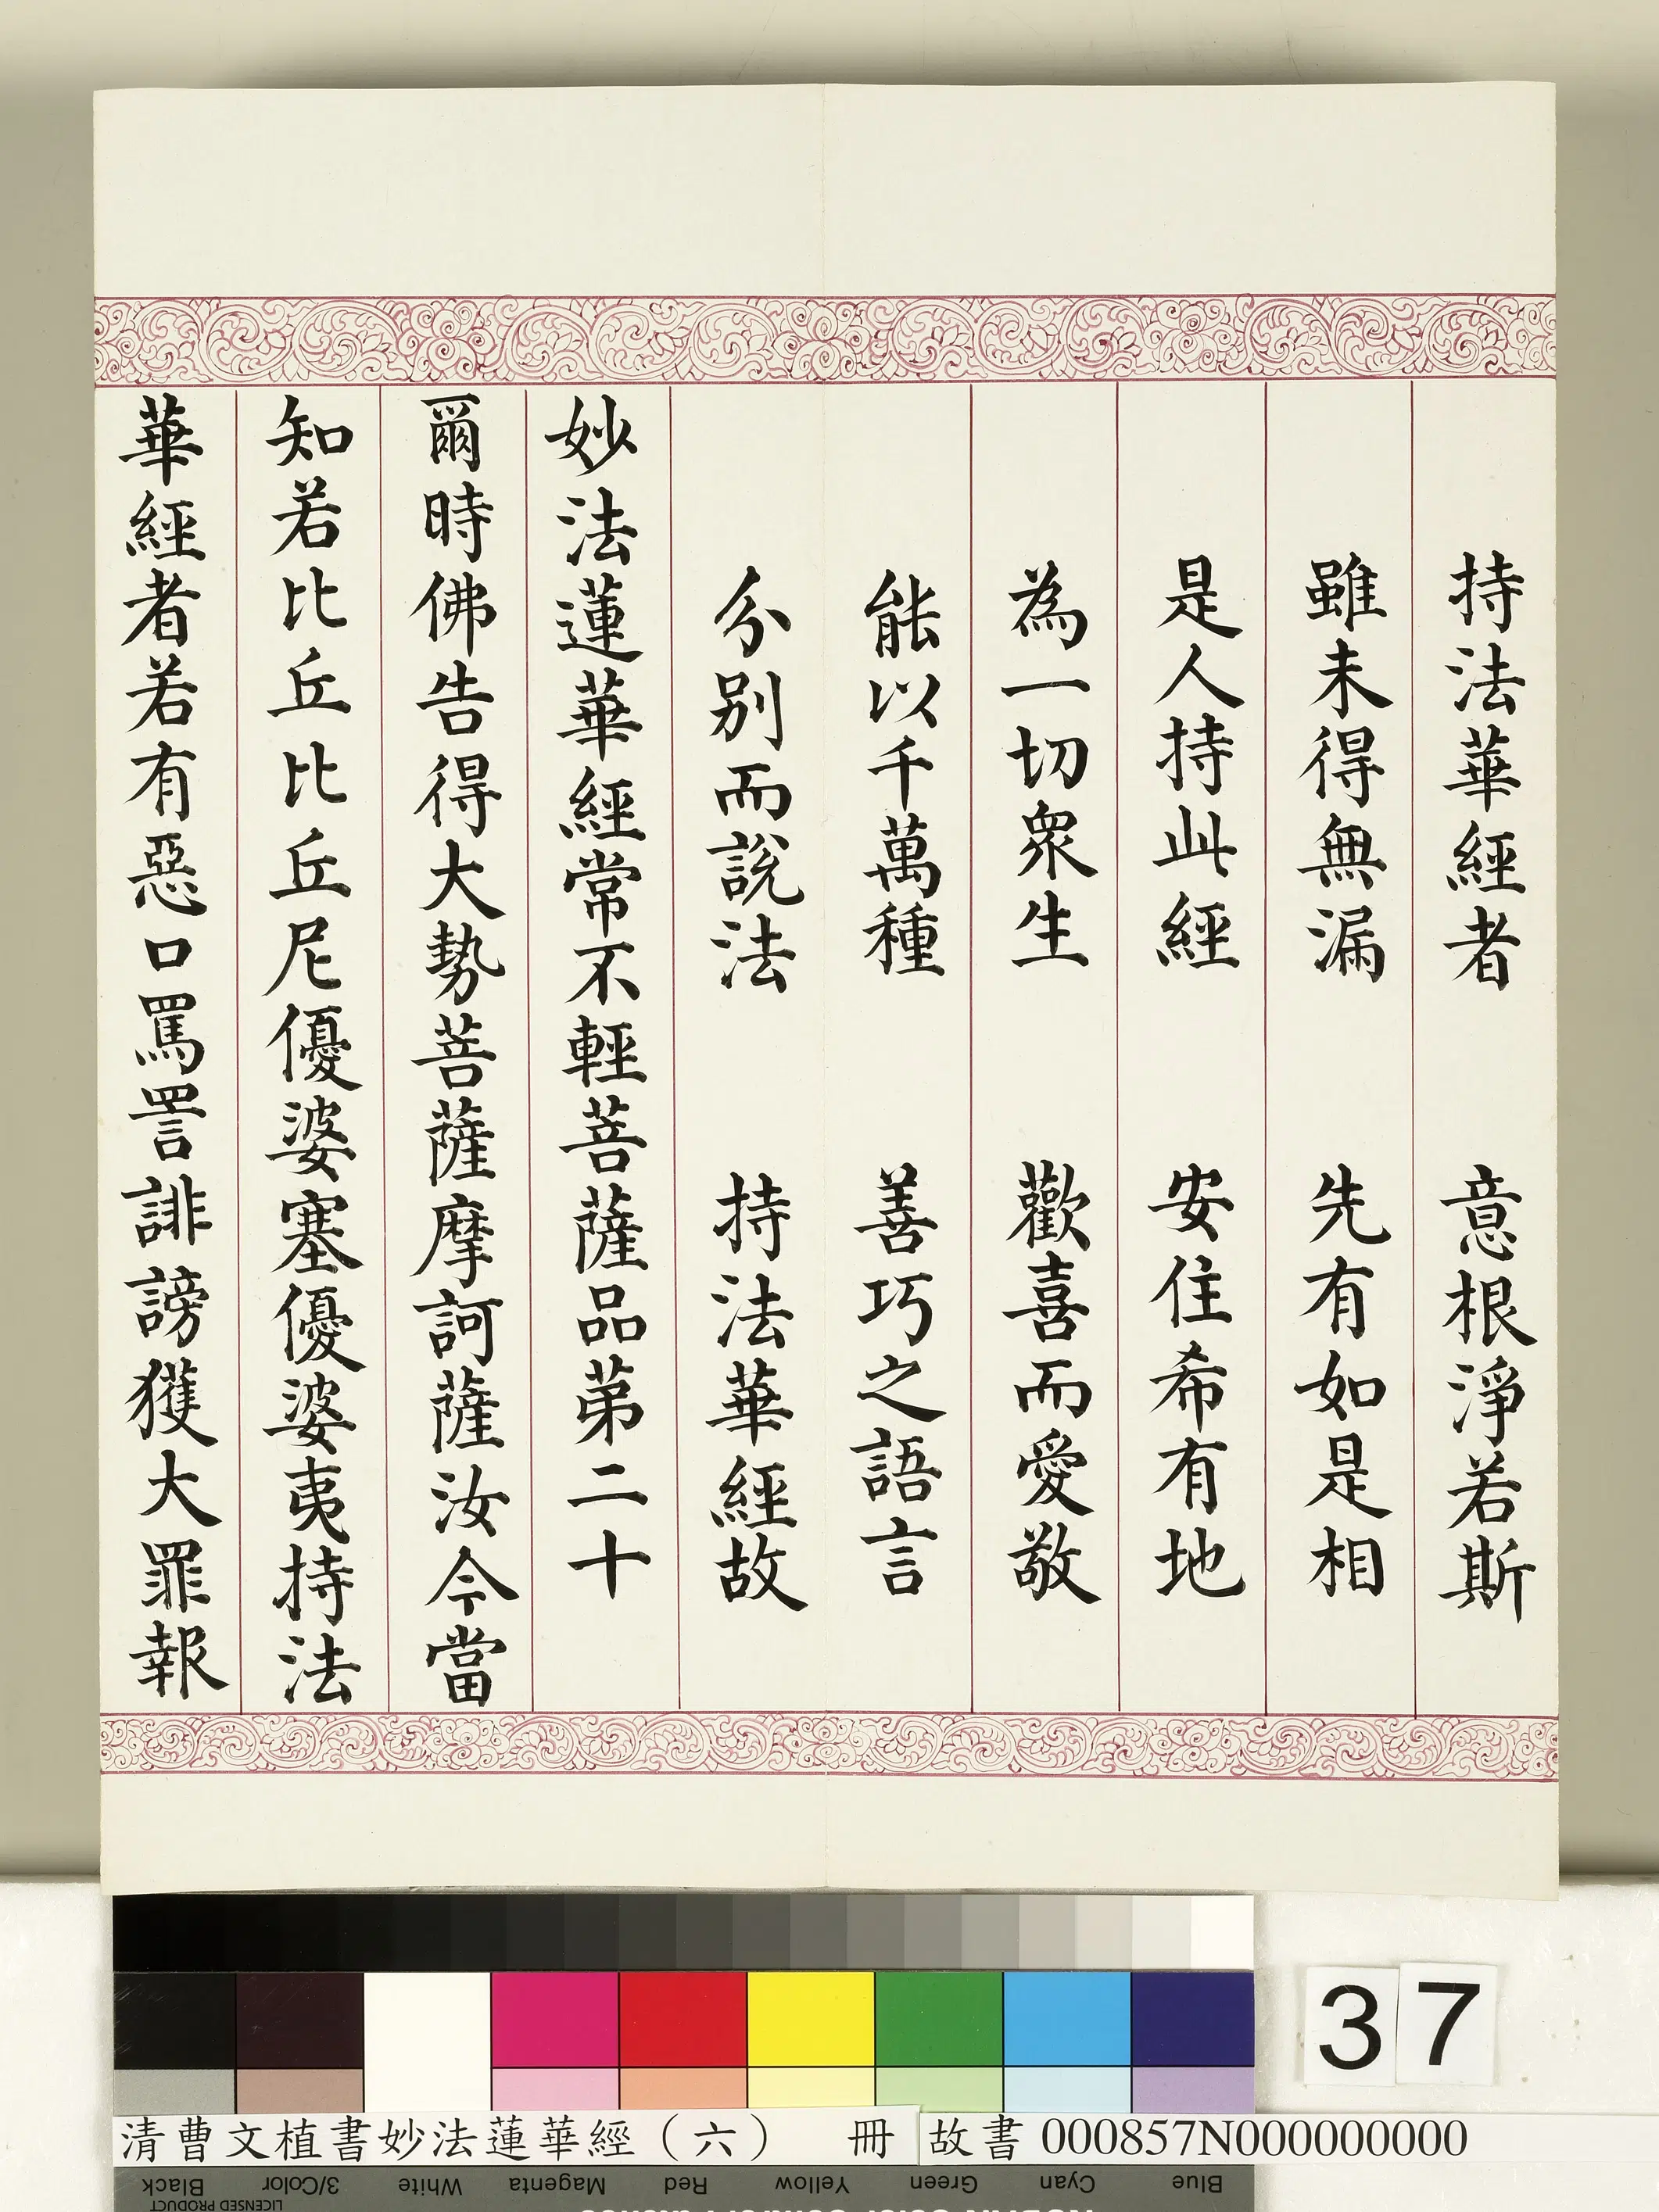 持法華經者　意根淨若斯
雖未得無漏　先有如是相
是人持此經　安住希有地
為一切眾生　歡喜而愛敬
能以千萬種　善巧之語言
分別而說法　持法華經故
妙法蓮華經常不輕菩薩品第二十
爾時佛告得大勢菩薩摩訶薩汝今當
知若比丘比丘尼優婆塞優婆夷持法
華經者若有惡口罵詈誹謗獲大罪報
37
清曹文植書妙法蓮華經（六）　冊
故書000857N000000000
Black 3/Color White Magenta Red Yellow Green Cyan Blue
LICENSED PRODUCT